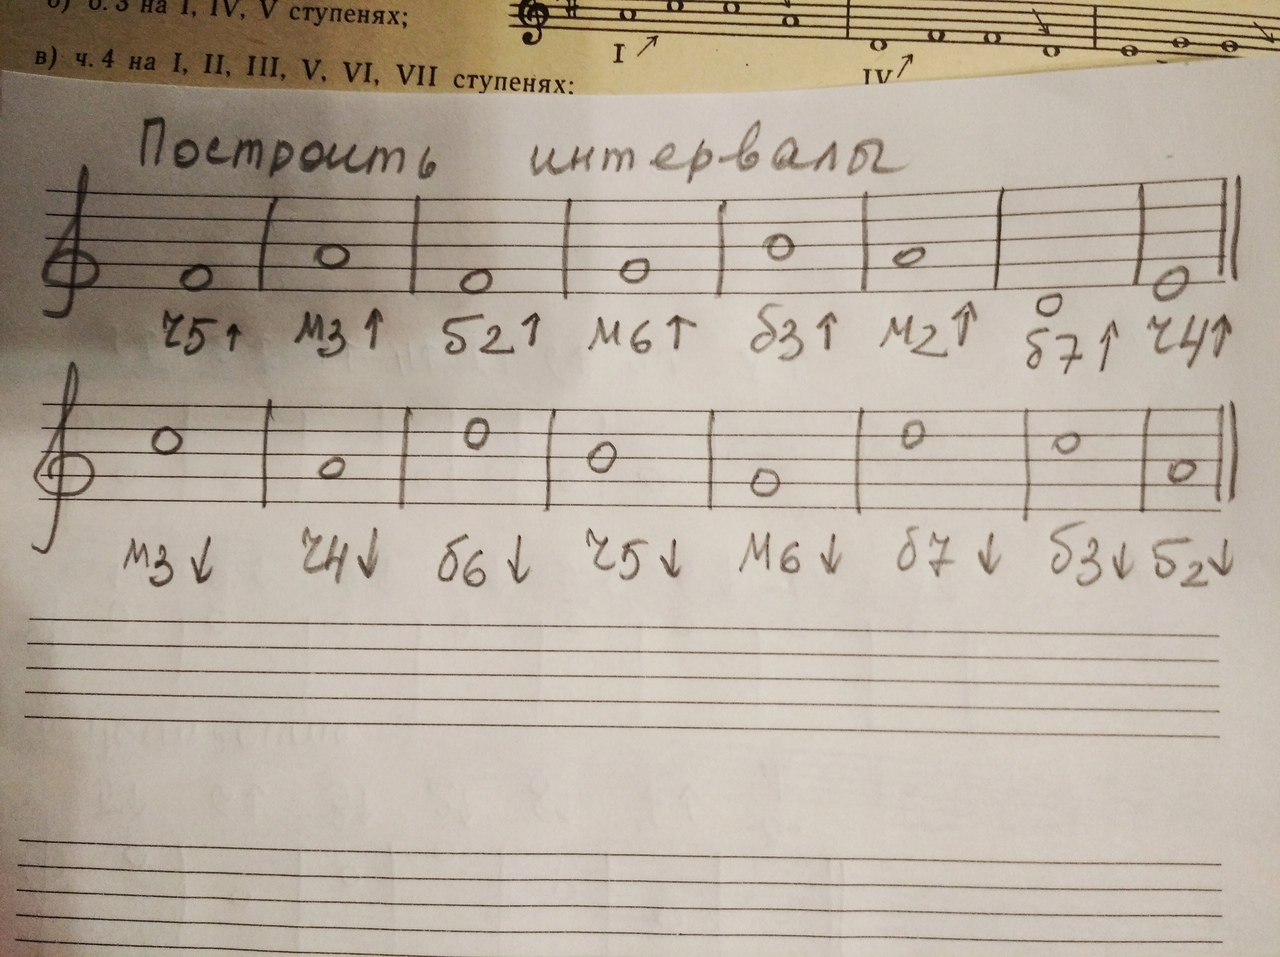 б) б. 3 на I, IV, V ступенях;
I IV
в) ч. 4 на I, II, III, V, VI, VII ступенях:
Построить интервалы
ч5↑ м3↑ б2↑ м6↑ б3↑ м2↑ б7↑ ч4↑
м3↓ ч4↓ б6↓ ч5↓ м6↓ б7↓ б3↓ б2↓